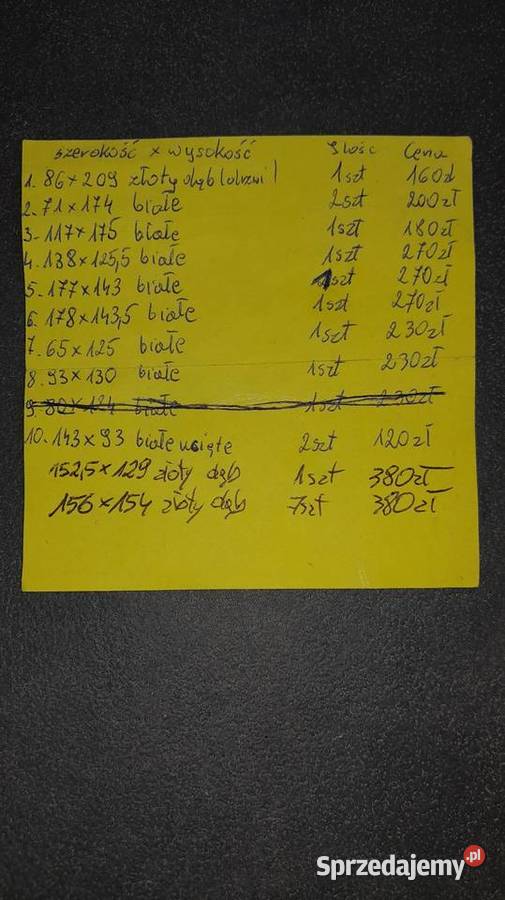 szerokość x wysokość Ilość Cena
1. 86x209 złoty dąb 1szt 160zł
2. 71x174 białe 2szt 200zł
3. 117x175 białe 1szt 180zł
4. 138x125,5 białe 1szt 270zł
5. 177x143 białe 1szt 270zł
6. 178x143,5 białe 1szt 270zł
7. 65x125 białe 1szt 230zł
8. 93x130 białe 1szt 230zł
9. 80x124 białe 1szt 230zł
10. 143x93 białe ucięte 2szt 120zł
152,5x129 złoty dąb 1szt 380zł
156x154 złoty dąb 7szt 380zł
Sprzedajemy.pl